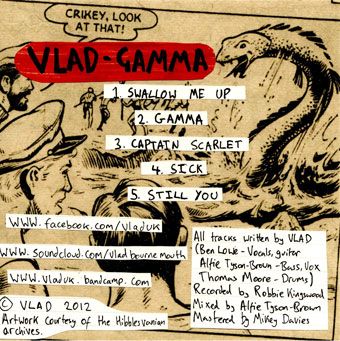 CRIKEY, LOOK
AT THAT!
VLAD-GAMMA
1. SWALLOW ME UP
2. GAMMA
3. CAPTAIN SCARLET
4. SICK
5. STILL YOU
WWW.facebook.com/vladuk
WWW.soundcloud.com/vladbournemouth
WWW.vladuk.bandcamp.com
© VLAD 2012
Artwork courtesy of the Hibblesvanian
archives.
All tracks written by VLAD
(Ben Lowe-Vocals, guitor
Alfie Tyson-Brown-Bass, Vox
Thomas Moore-Drums)
Recorded by Robbie Kingswood
Mixed by Alfie Tyson-Brown
Mastered by Mikey Davies